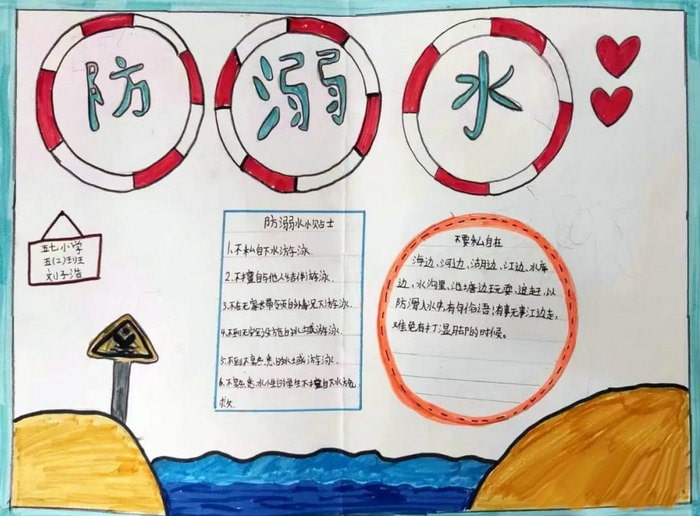 防溺水
五七小学
五(2)班
刘子浩
防溺水小贴士
1.不私自下水游泳
2.不擅自与他人结伴游泳.
3.不在无家长带领的情况下游泳.
4.不到无安全设施的水域游泳.
5.不到不熟悉的水域游泳.
6.不熟悉水性的学生不擅自下水施
救
不要私自在
海边、河边、湖边、江边、水库
边、水沟里、池塘边玩耍、追赶,以
防滑入水中.有句俗语:有事无事江边走,
难免有打湿脚的时候。